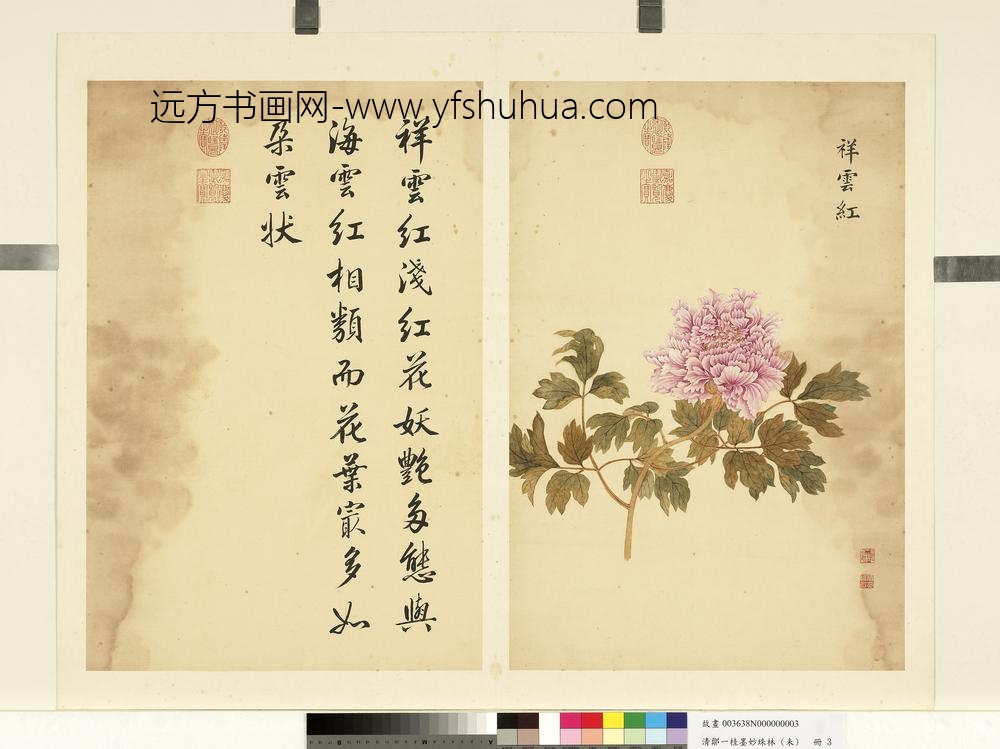 远方书画网-www.yfshuhua.com
祥雲紅
祥雲紅淺紅花妖艷多態與
海雲紅相類而花葉寂多如
朶雲狀
故畫 003638N000000003
清鄒一桂墨妙珠林（未） 冊 3